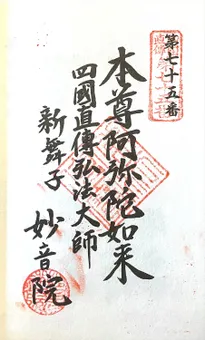 第七十五番
本尊阿弥陀如来
四國直傳弘法大師
新舞子 妙音院